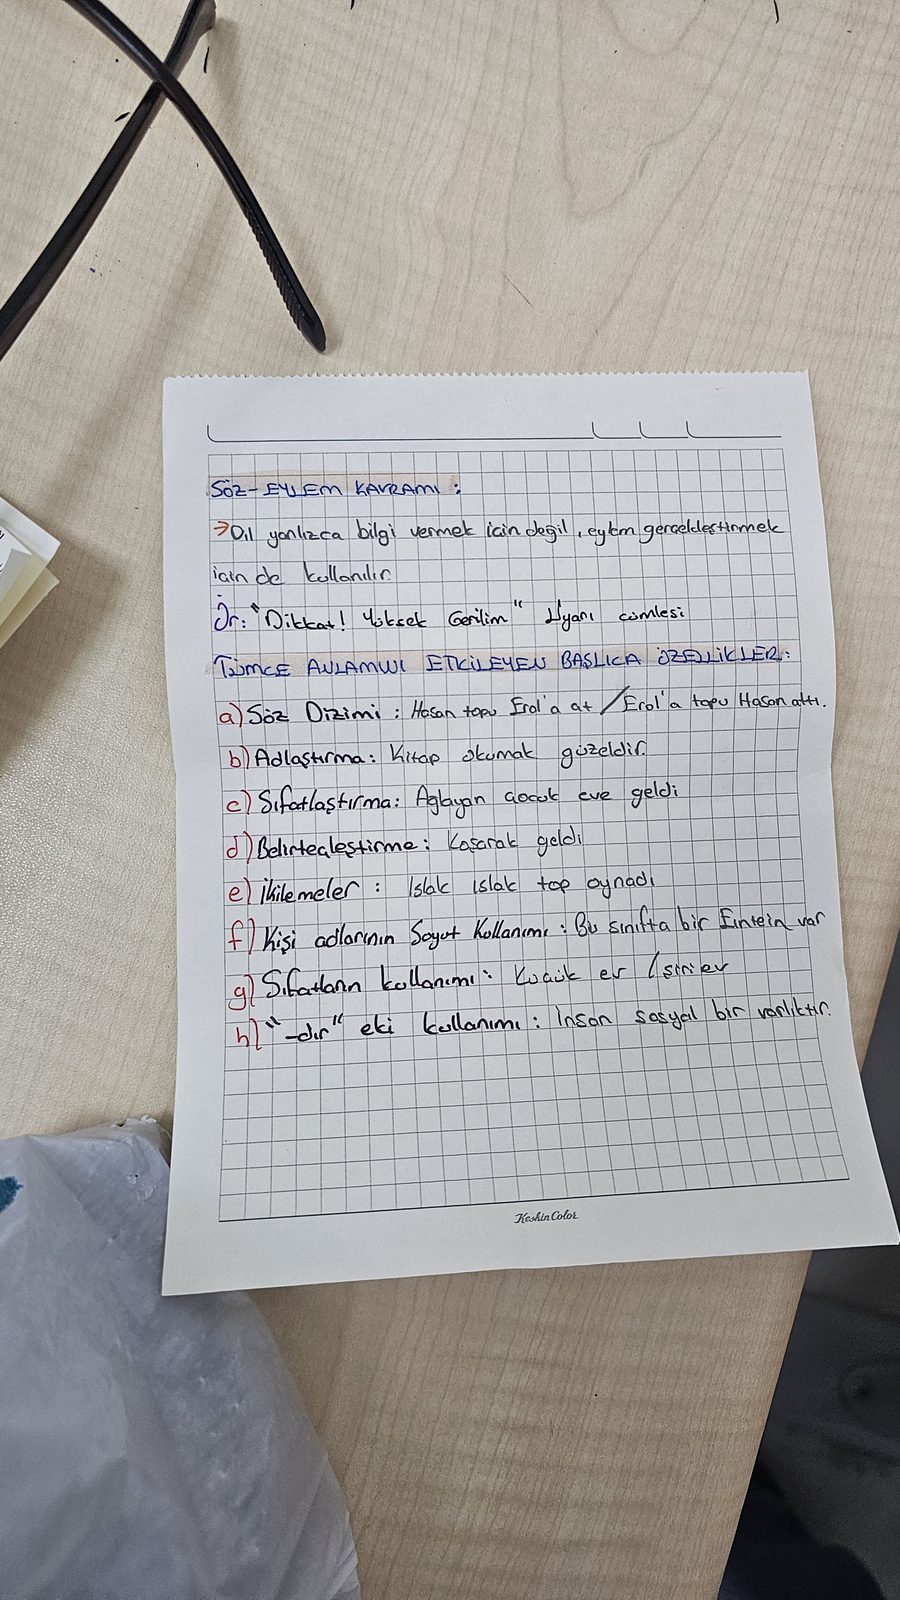 SÖZ-EYLEM KAVRAMI :
→ Dil yanlızca bilgi vermek için değil, eylem gerçekleştirmek
için de kullanılır.
Ör: "Dikkat! Yüksek Gerilim" Uyarı cümlesi
TÜMCE ANLAMINI ETKİLEYEN BAŞLICA ÖZELLİKLER:
a) Söz Dizimi : Hasan topu Erol'a at / Erol'a topu Hasan attı.
b) Adlaştırma : Kitap okumak güzeldir.
c) Sıfatlaştırma : Ağlayan çocuk eve geldi
d) Belirteçleştirme : Koşarak geldi
e) İkilemeler : Islak ıslak top oynadı
f) Kişi adlarının Soyut Kullanımı : Bu sınıfta bir Eintein var
g) Sıfatların kullanımı : Küçük ev / şirin ev
h) "-dır" eki kullanımı : İnsan sosyal bir varlıktır.
KeskinColor